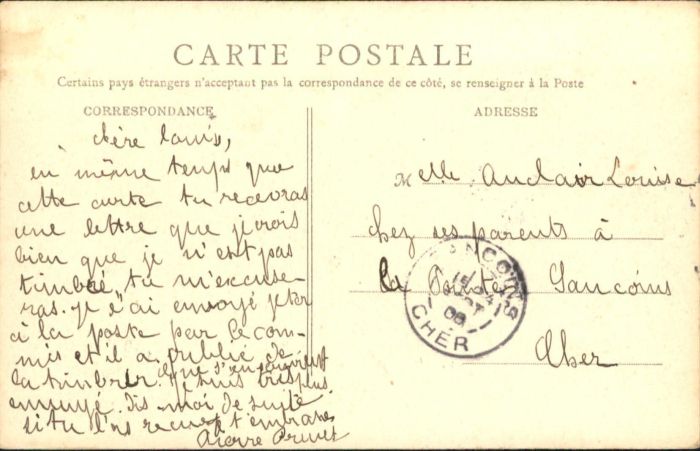 CARTE POSTALE
Certains pays étrangers n'acceptant pas la correspondance de ce côté, se renseigner à la Poste
CORRESPONDANCE
chère Louis,
en même temps que
cette carte tu recevras
une lettre que je crois
bien que je n'est pas
timbré, tu m'excuse-
ras. je l'ai envoyé jeter
à la poste par le com-
mis et il a oublié de
la timbrer. s'en souvient
je suis très plus
ennuyé. Dis-moi de suite
si tu l'as recue. t'embrasse
Pierre
ADRESSE
Melle Auclair Louise
chez ses parents à
la Sancoins
Cher
SANCOINS
CHER
08